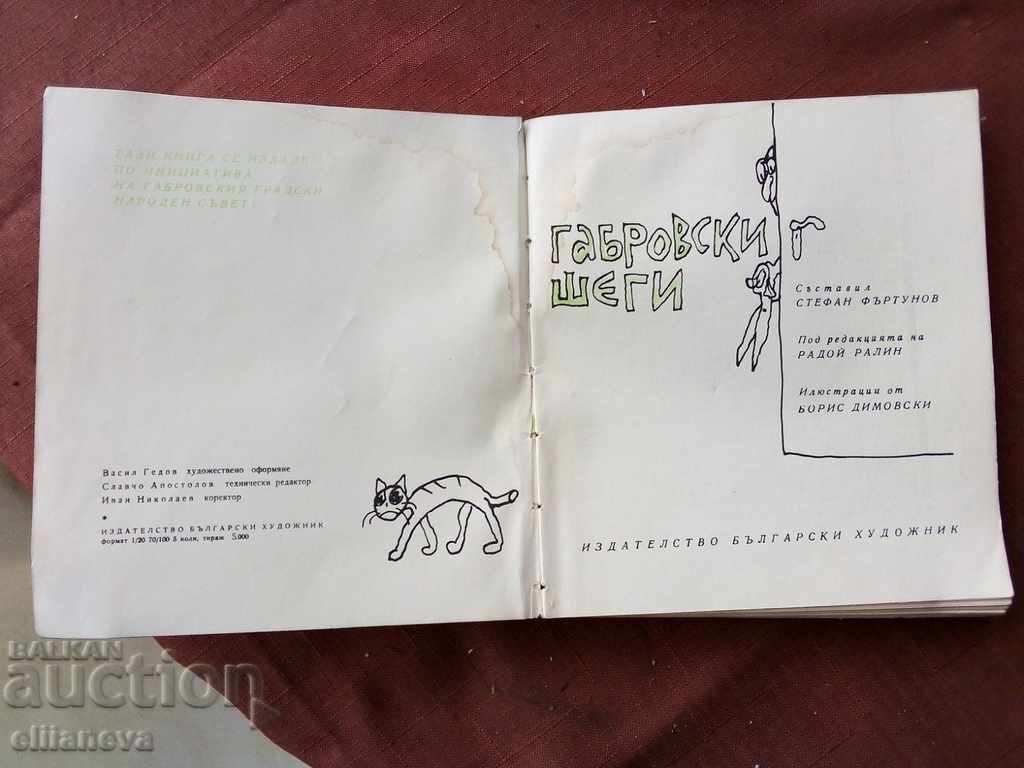 ТАЗИ КНИГА СЕ ИЗДАДЕ
ПО ИНИЦИАТИВА
НА ГАБРОВСКИЯ ГРАДСКИ
НАРОДЕН СЪВЕТ
Васил Гедов художествено оформяне
Славчо Апостолов технически редактор
Иван Николаев коректор
*
ИЗДАТЕЛСТВО БЪЛГАРСКИ ХУДОЖНИК
формат 1/20 70/100 8 коли, тираж 5.000
ГАБРОВСКИ
ШЕГИ
Съставил
СТЕФАН ФЪРТУНОВ
Под редакцията на
РАДОЙ РАЛИН
Илюстрации от
БОРИС ДИМОВСКИ
ИЗДАТЕЛСТВО БЪЛГАРСКИ ХУДОЖНИК
BALKAN
auction
ellianeva